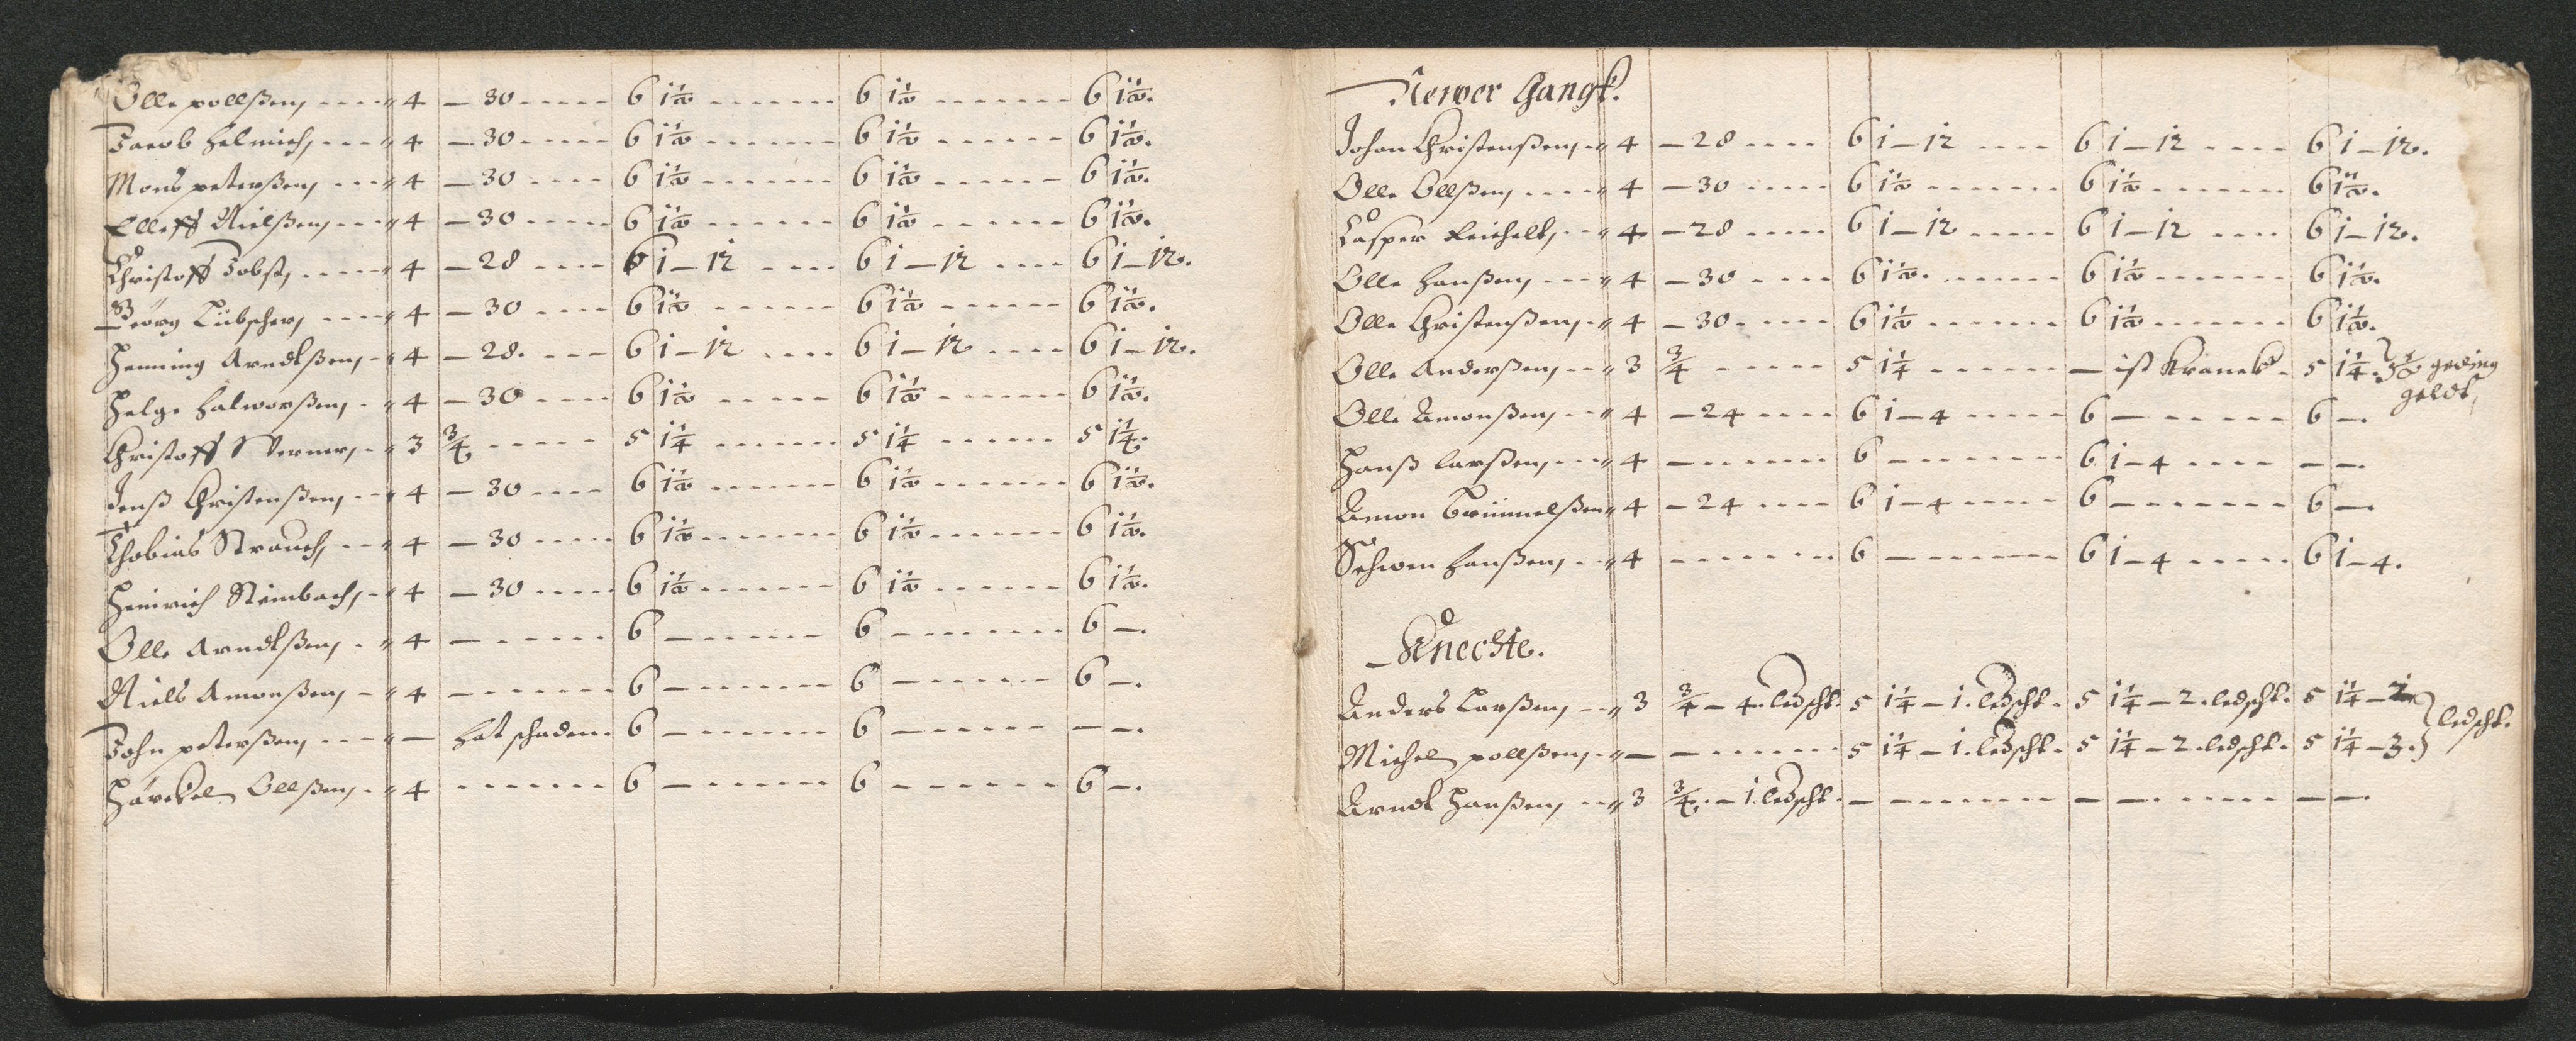 Olle pollßen 4 – 30 6 1½ 6 1½ 6 1½.
Jacob Helmich 4 – 30 6 1½ 6 1½ 6 1½.
Mons peterßen 4 – 30 6 1½ 6 1½ 6 1½.
Elleff Nielßen 4 – 30 6 1½ 6 1½ 6 1½.
Christoff Jobst 4 – 28 6 1–12 6 1–12 6 1–12.
Georg Lübscher 4 – 30 6 1½ 6 1½ 6 1½.
Henning Arndtßen 4 – 28. 6 1–12 6 1–12 6 1–12.
Helge Halworßen 4 – 30 6 1½ 6 1½ 6 1½.
Christoff Werner 3 ¾ 5 1¼ 5 1¼ 5 1¼.
Jenß Christenßen 4 – 30 6 1½ 6 1½ 6 1½.
Thobias Strauch 4 – 30 6 1½ 6 1½ 6 1½.
Heinrich Steinbach 4 – 30 6 1½ 6 1½ 6 1½.
Olle Arndtßen 4 – 6 – 6 – 6 –.
Niels Amonßen 4 – 6 – 6 – 6 –.
John peterßen – hat schaden. 6 – 6 – – –.
Härckel Ollßen 4 – 6 – 6 – 6 –.
Newer Gangk.
Johan Christenßen 4 – 28 6 1–12 6 1–12 6 1–12.
Olle Ollßen 4 – 30 6 1½ 6 1½ 6 1½.
Casper Reichelt 4 – 28 6 1–12 6 1–12 6 1–12.
Olle Hanßen 4 – 30 6 1½. 6 1½ 6 1½.
Olle Christenßen 4 – 30 6 1½ 6 1½ 6 1½.
Olle Anderßen 3 ¾ 5 1¼ – ist Kranck. 5 1¼. geding
geldt
Olle Amonßen 4 – 24 6 1–4 6 – 6 –.
Hanß larßen 4 – 6 – 6 1–4 – –.
Amon Trummelßen 4 – 24 6 1–4 6 – 6 –.
Schwen Hanßen 4 – 6 – 6 1–4 6 1–4.
Knechte.
Anders Larßen 3 ¾ – 4. ledscht. 5 1¼ – 1. ledscht. 5 1¼ – 2. ledscht. 5 1¼ –
Michel pollßen – – 5 1¼ – 1. ledscht. 5 1¼ – 2. ledscht. 5 1¼ – 3. ledscht.
Arndt Hanßen 3 ¾. – 1. ledscht. – – – –. – –.